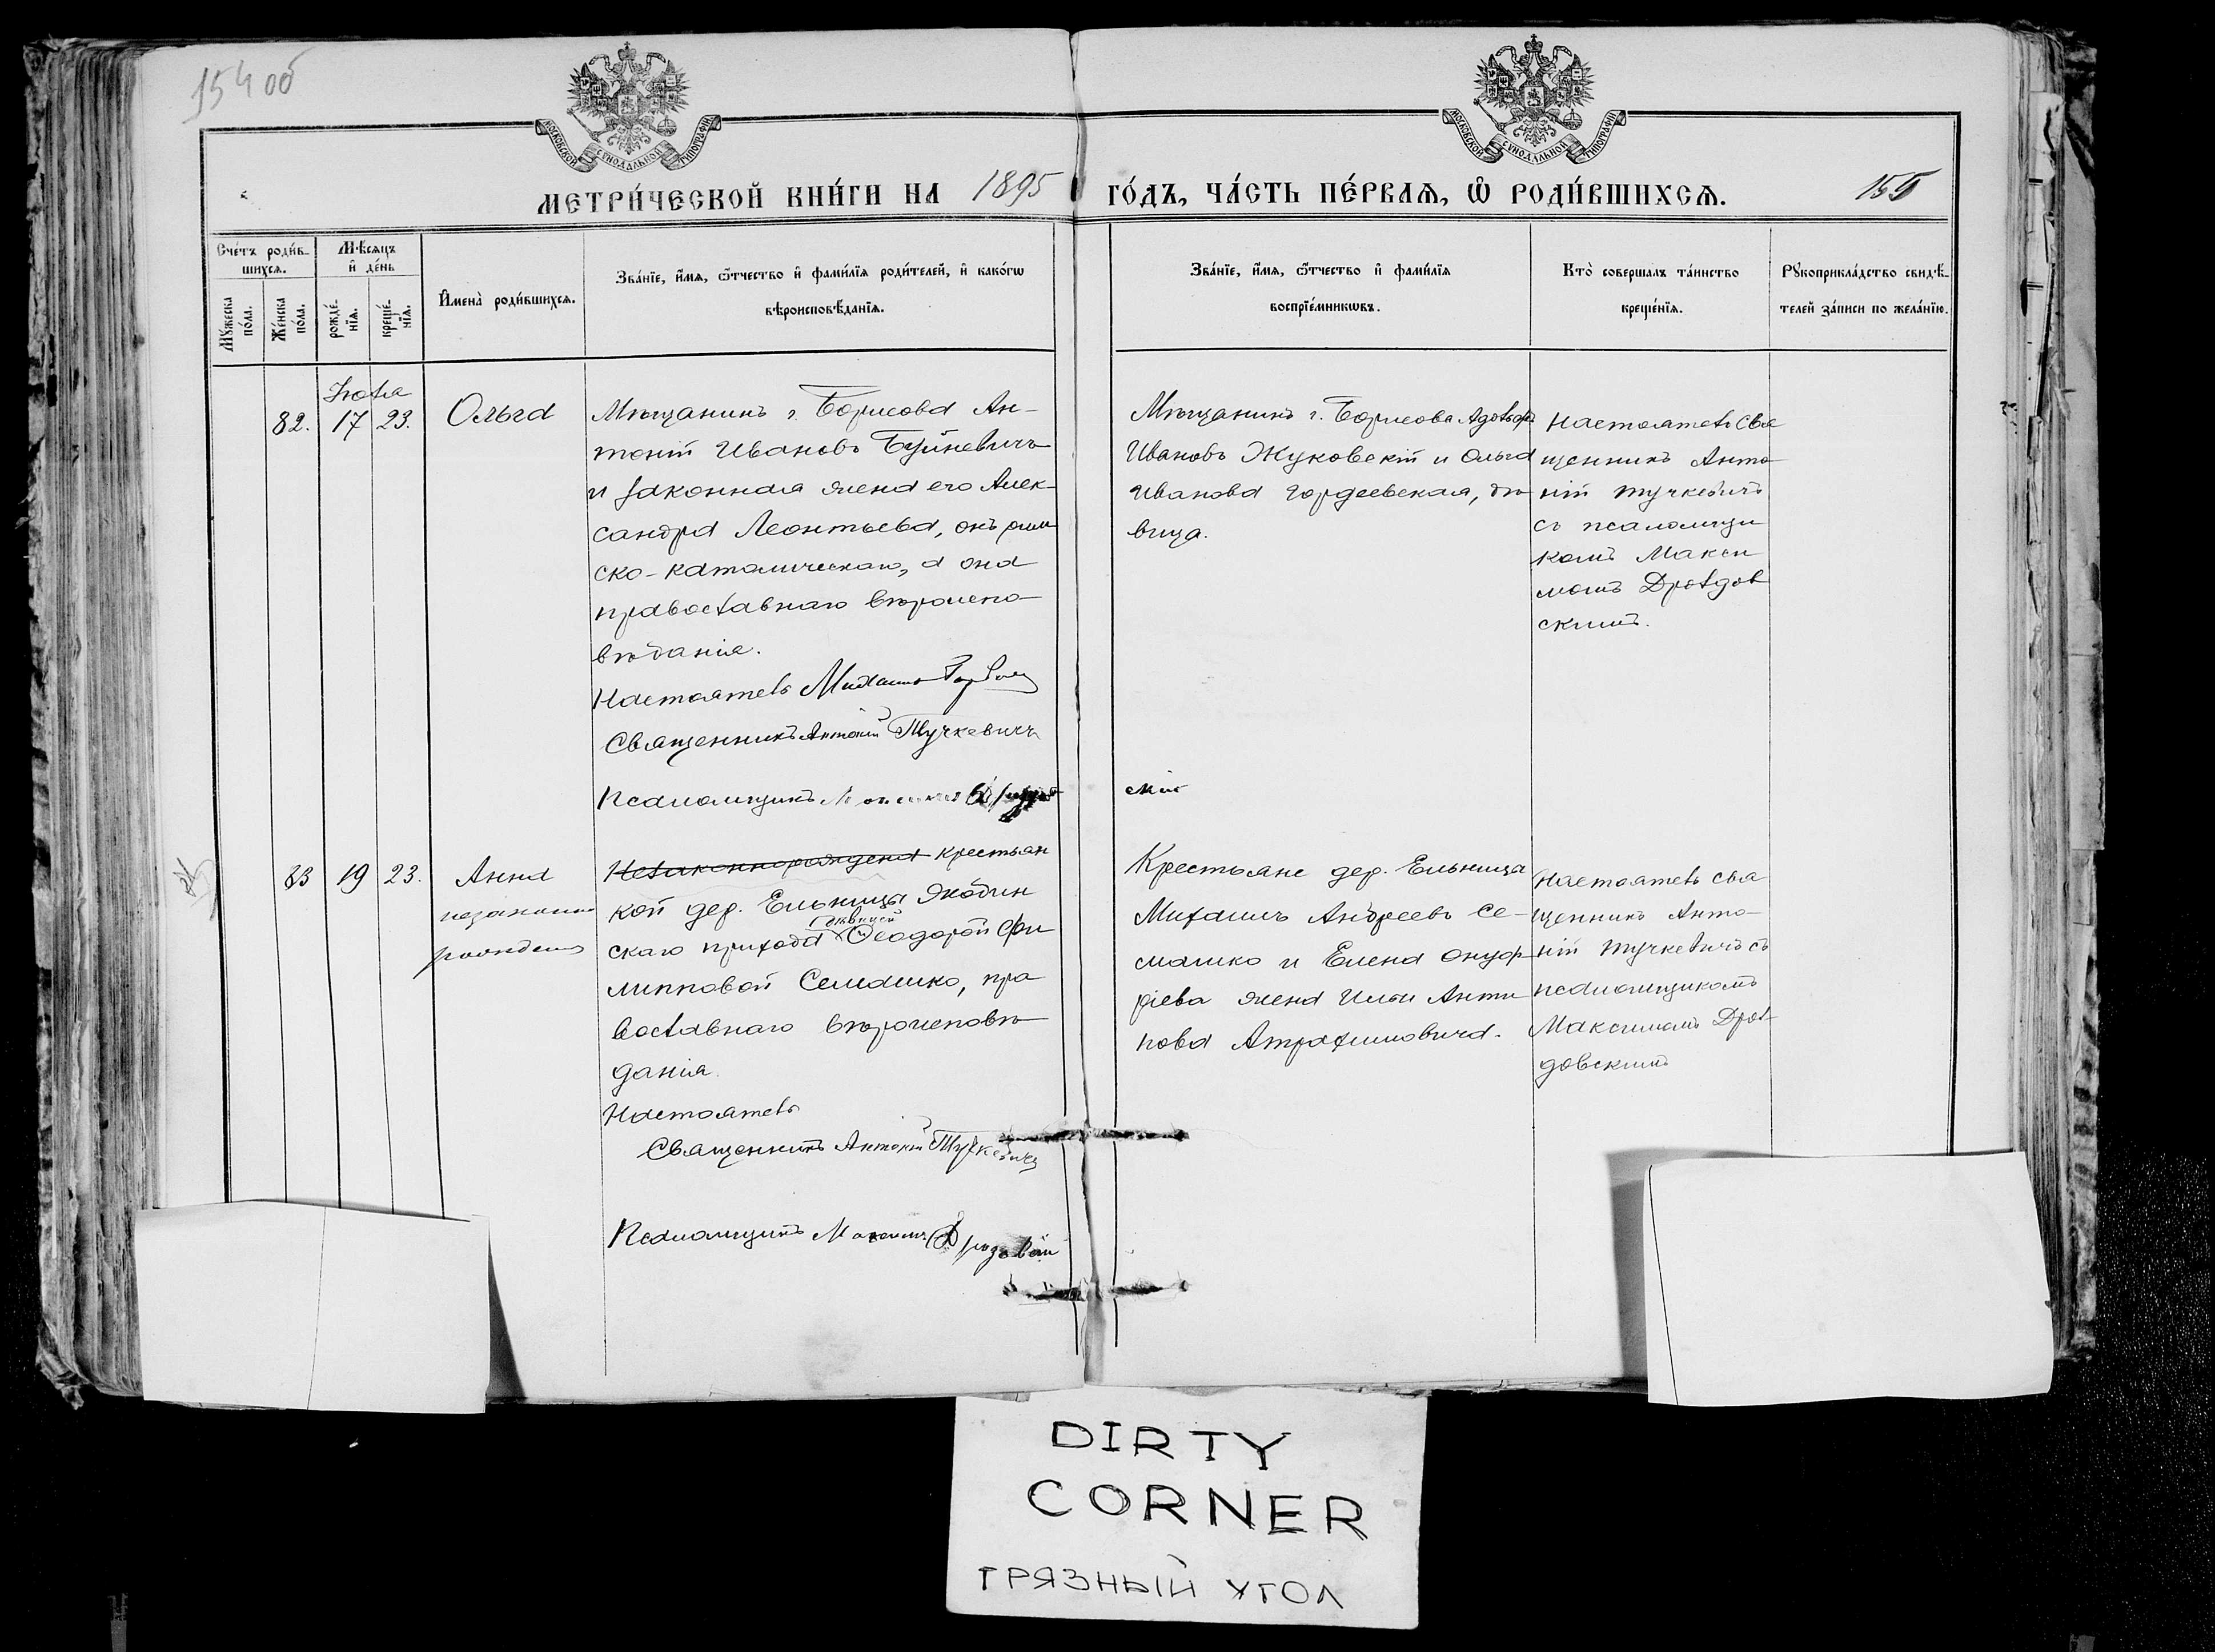 154 об
МОСКОВСКОЙ СѴНОДАЛЬНОЙ ТИПОГРАФІИ
МОСКОВСКОЙ СѴНОДАЛЬНОЙ ТИПОГРАФІИ
МЕТРИ́ЧЕСКОЙ КНИ́ГИ НА 1895 ГО́ДЪ, ЧА́СТЬ ПЕ́РВАѦ, Ѡ҆ РОДИ́ВШИХСѦ.
155
Сче́тъ роди́в-
шихсѧ.
Мꙋ́жеска
по́ла.
Же́нска
по́ла.
Мѣ́сѧцъ
и҆ де́нь
рожде́-
нїѧ.
креще́-
нїѧ.
И҆мена̀ роди́вшихсѧ.
Зва́нїе, и҆́мѧ, ѻ҆́тчество и҆ фами́лїѧ роди́телей, и҆ како́гѡ
вѣроисповѣ́данїѧ.
Зва́нїе, и҆́мѧ, ѻ҆́тчество и҆ фами́лїѧ
воспрїе́мникѡвъ.
Кто̀ соверша́лъ та́инство
креще́нїѧ.
Рꙋкоприкла́дство свидѣ́-
телей за́писи по жела́нїю.
Іюля
82. 17 23. Ольга
Мѣщанинъ г. Борисова Ан-
тоній Ивановъ Буйневичъ
и законная жена его Алек-
сандра Леонтьева, онъ рим
ско-католическаго, а она
православнаго вѣроиспо-
вѣданія.
Настоятель
Священникъ Антоній Тучкевичъ
Псаломщикъ
Мѣщанинъ г. Борисова Адольфъ
Ивановъ Жуковскій и Ольга
Иванова Гордеевская, дѣ-
вица.
скій
Настоятель Свя
щенникъ Анто-
ній Тучкевичъ
съ псаломщи
комъ Макси
момъ Дроздов
скимъ.
83 19 23. Анна
незаконно
рожденна
Незаконнорождена крестьян
кой дер. Ельницы
скаго прихода дѣвицей Ѳеодорой Фи
липповой Семашко, пра
вославнаго вѣроисповѣ-
данія.
Настоятель
Священникъ Антоній Тучкевичъ
Псаломщикъ Максимъ Дроздовскій
Крестьяне дер. Ельница
Михаилъ Андреевъ Се-
машко и Елена Онуф-
ріева жена Ильи Анти
пова Атрахимовича.
Настоятель свя
щенникъ Анто-
ній Тучкевичъ съ
псаломщикомъ
Максимомъ Дроз-
довскимъ
DIRTY
CORNER
ГРЯЗНЫЙ УГОЛ